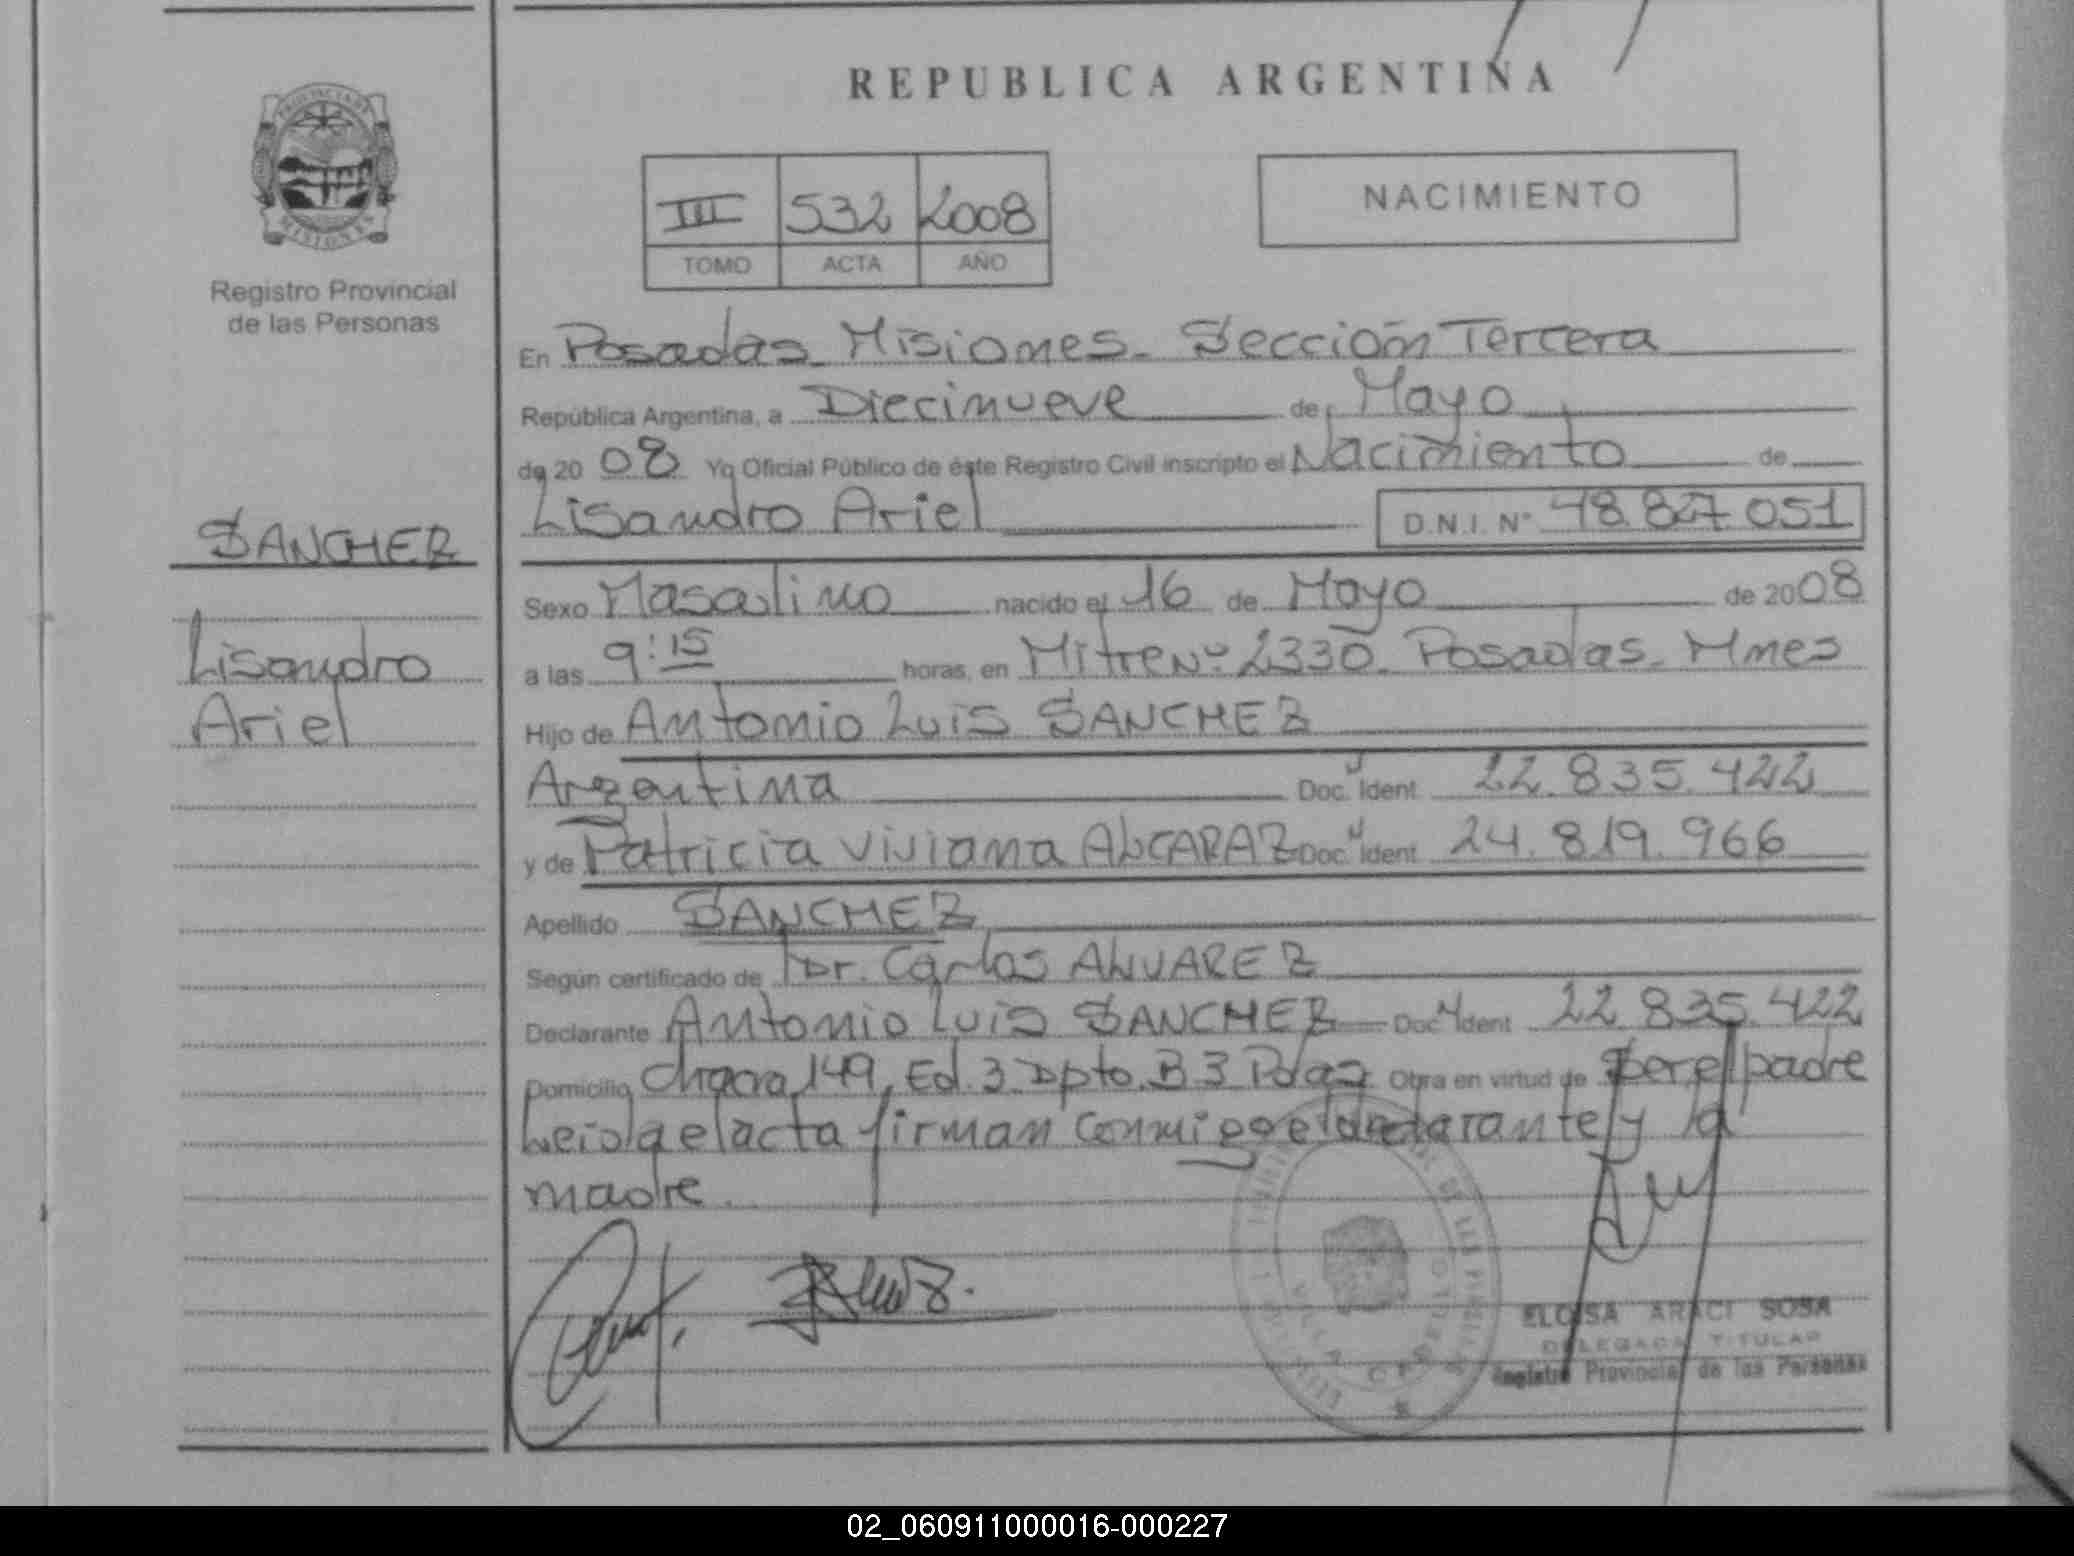 REPUBLICA ARGENTINA
PROVINCIA DE
MISIONES
Registro Provincial
de las Personas
NACIMIENTO
III 532 2008
TOMO ACTA AÑO
En Posadas Misiones. Sección Tercera
República Argentina, a Diecinueve de Mayo
de 20 08 Yo Oficial Público de éste Registro Civil inscripto el Nacimiento de
Lisandro Ariel D.N.I. Nº 48.827.051
SANCHEZ
Lisandro
Ariel
Sexo Masculino nacido el 16 de Mayo de 2008
a las 9:15 horas, en Mitre Nº 2330. Posadas. Mnes
Hijo de Antonio Luis SANCHEZ
Argentina Doc. Ident 22.835.422
y de Patricia Viviana ALCARAZ Doc. Ident 24.819.966
Apellido SANCHEZ
Según certificado de Dr. Carlos ALVAREZ
Declarante Antonio Luis SANCHEZ Doc. Ident 22.835.422
Domicilio Chacra 149, Ed. 3 Dpto. B 3 Pdas Obra en virtud de Ser el padre
Leida el acta firman conmigo el declarante y la
madre.
ELOISA ARACI SOSA
DELEGADA TITULAR
Registro Provincial de las Personas
02_060911000016-000227